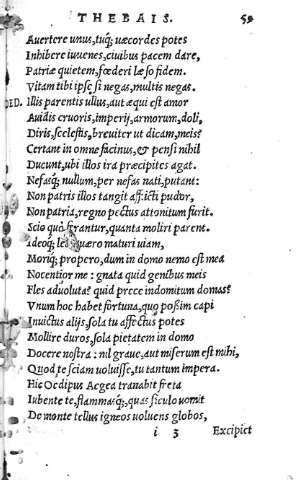 THEBAIS. 59
Auertere unus, tuq; uæcordes potes
Inhibere iuuenes, ciuibus pacem dare,
Patriæ quietem, fœderi læso fidem.
Vitam tibi ipse si negas, multis negas.
OED. Illis parentis ullus, aut æqui est amor
Auidis cruoris, imperij, armorum, doli,
Diris, scelestis, breuiter ut dicam, meis?
Certant in omne facinus, & pensi nihil
Ducunt, ubi illos ira præcipites agat.
Nefasq; nullum, per nefas nati, putant:
Non patris illos tangit afflicti pudor,
Non patria, regno pectus attonitum furit.
Scio quò ferantur, quanta moliri parent.
Ideoq; leti quæro maturi uiam,
Moriq; propero, dum in domo nemo est mea
Nocentior me: gnata quid genibus meis
Fles aduoluta? quid prece indomitum domas?
Vnum hoc habet fortuna, quo possim capi
Inuictus alijs, sola tu affectus potes
Mollire duros, sola pietatem in domo
Docere nostra: nil graue, aut miserum est mihi,
Quod te sciam uoluisse, tu tantum impera.
Hic Oedipus Aegea tranabit freta
Iubente te, flammasq; quas siculo uomit
De monte tellus igneos uoluens globos,
i 3 Excipiet